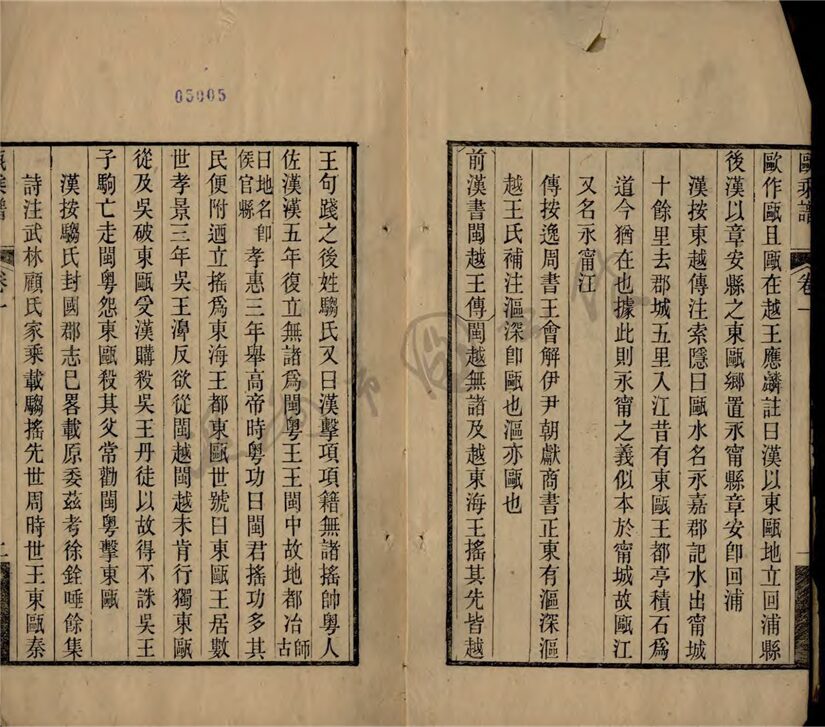 甌乘譜
卷一
歐作甌且甌在越王應麟註曰漢以東甌地立回浦縣
後漢以章安縣之東甌鄉置永甯縣章安卽回浦
漢按東越傳注索隱曰甌水名永嘉郡記水出甯城
十餘里去郡城五里入江昔有東甌王都亭積石爲
道今猶在也據此則永甯之義似本於甯城故甌江
又名永甯江
傳按逸周書王會解伊尹朝獻商書正東有漚深漚
越王氏補注漚深卽甌也漚亦甌也
前漢書閩越王傳閩越無諸及越東海王搖其先皆越
05005
王句踐之後姓騶氏又曰漢擊項項籍無諸搖帥粵人
佐漢漢五年復立無諸爲閩粵王王閩中故地都冶古師
曰地名卽侯官縣孝惠三年舉高帝時粵功曰閩君搖功多其
民便附迺立搖爲東海王都東甌世號曰東甌王居數
世孝景三年吳王濞反欲從閩越閩越未肯行獨東甌
從及吳破東甌受漢購殺吳王丹徒以故得不誅吳王
子駒亡走閩粵怨東甌殺其父常勸閩粵擊東甌
漢按騶氏封國郡志巳畧載原委茲考徐銓唾餘集
詩注武林顧氏家乘載騶搖先世周時世王東甌秦
卷一